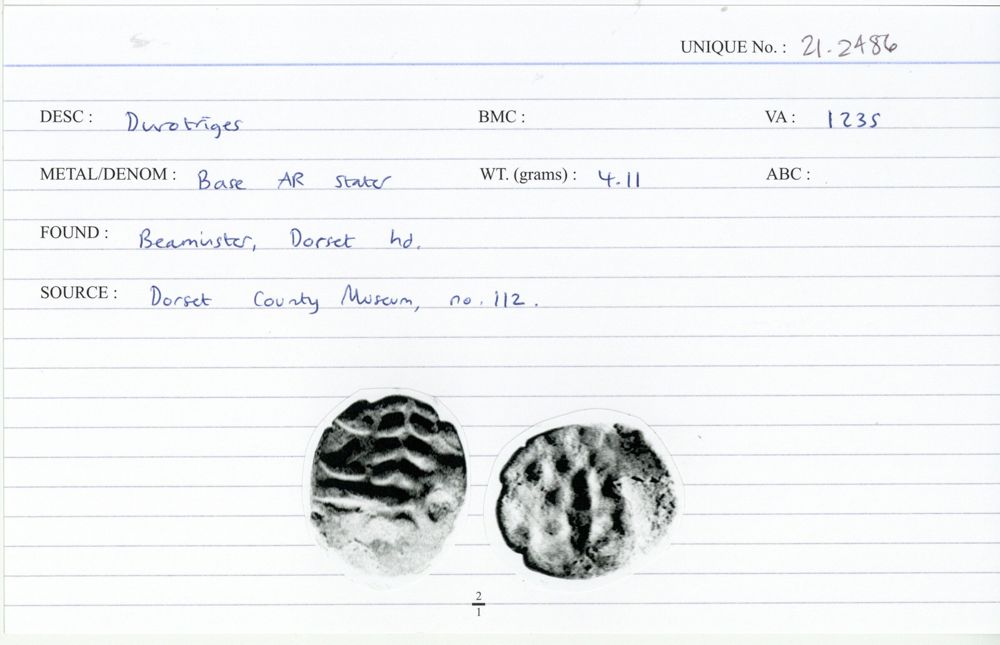 UNIQUE No. : 21.2486
DESC : Durotriges BMC : VA : 1235
METAL/DENOM : Base AR stater WT. (grams) : 4.11 ABC :
FOUND : Beaminster, Dorset hd.
SOURCE : Dorset County Museum, no. 112.
2
1